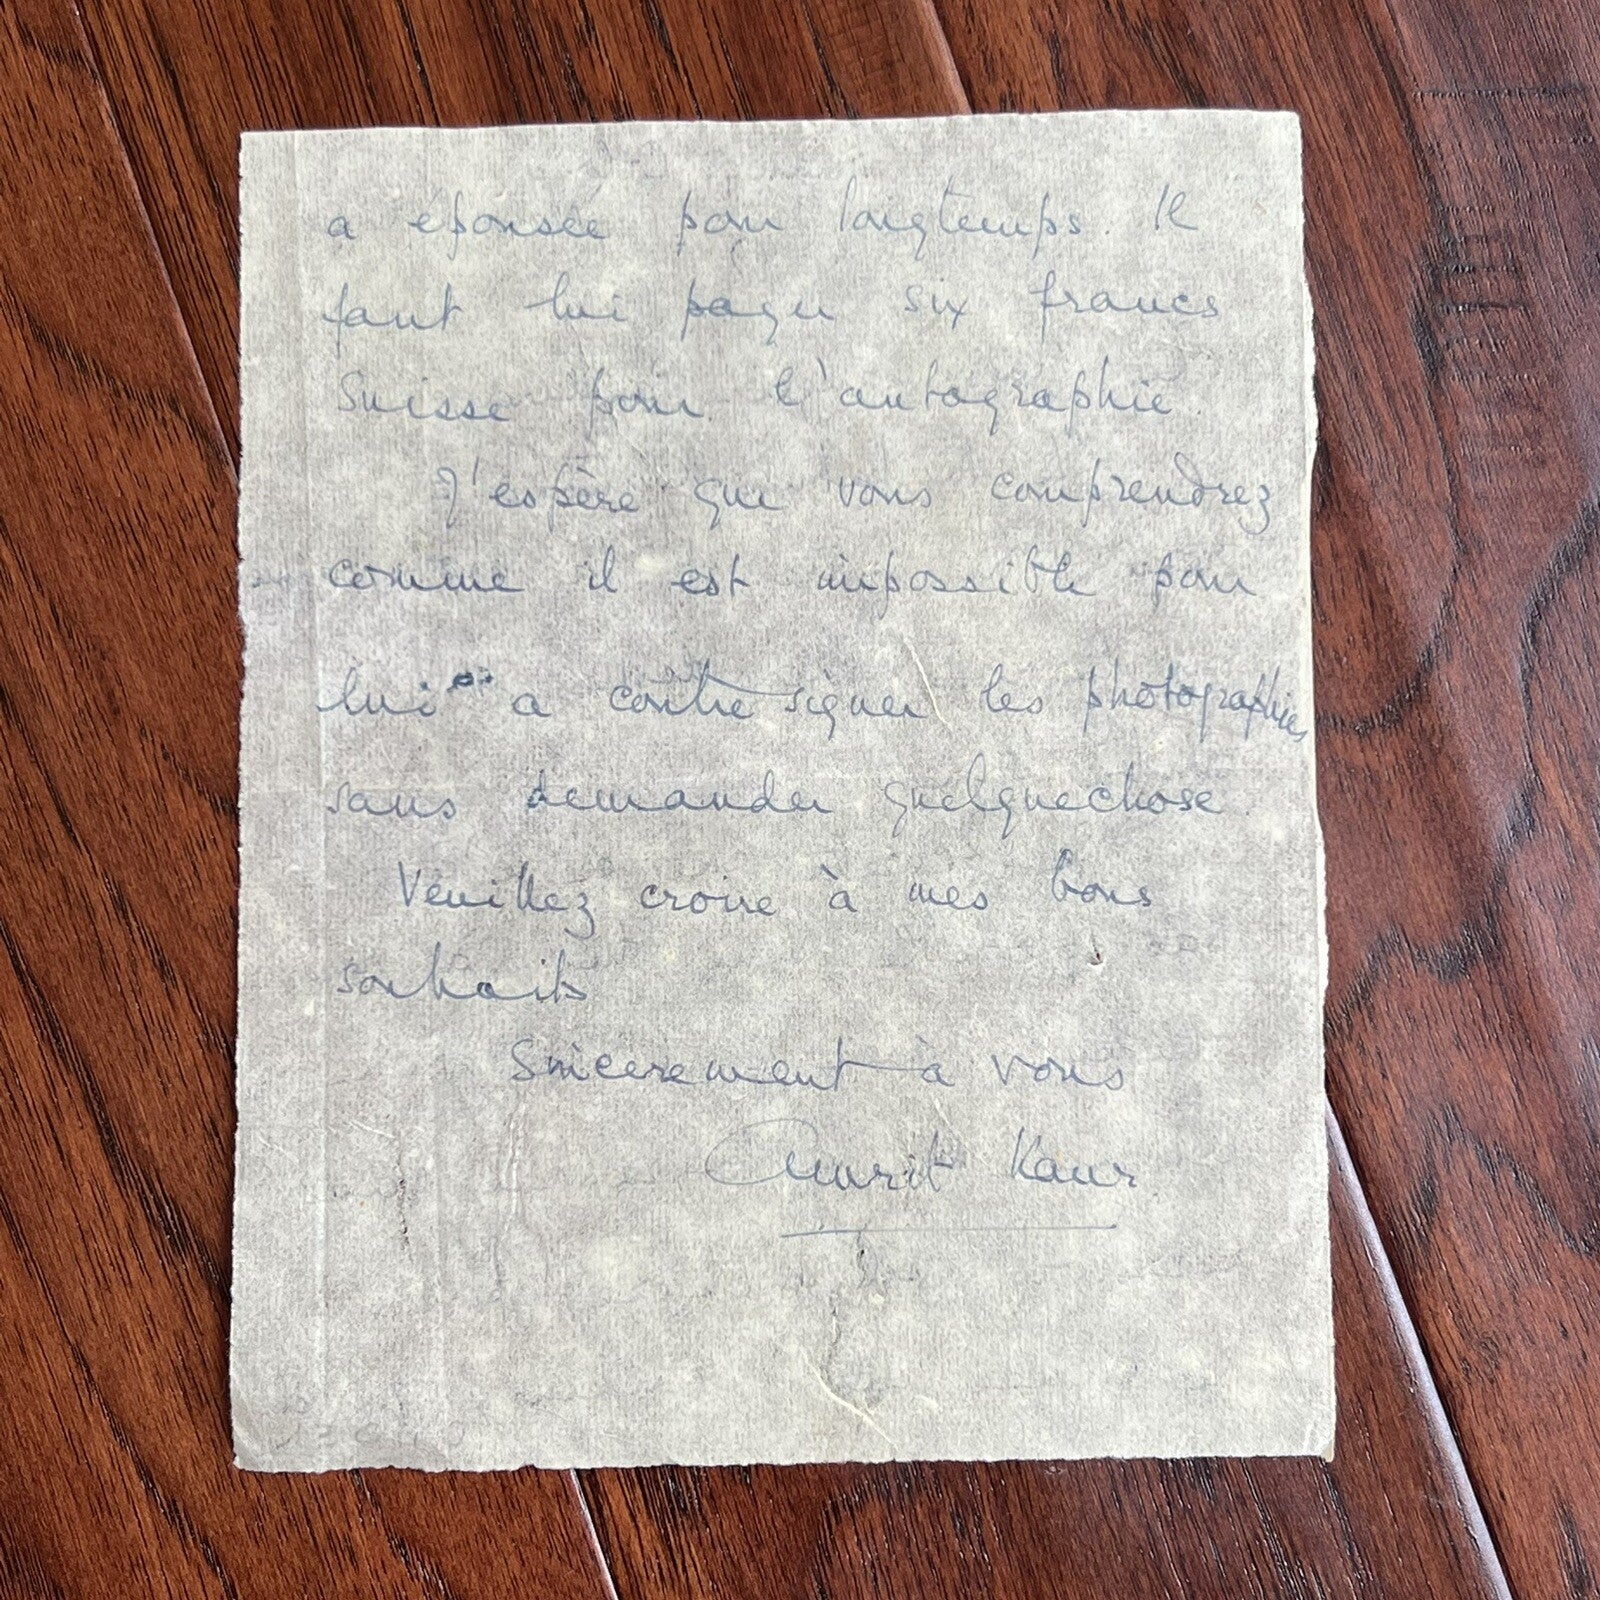 a épousée pour longtemps. Il
faut lui payer six francs
Suisse pour l'autographie.
J'espère que vous comprendrez
comme il est impossible pour
lui a contre signer les photographies
sans demander quelquechose.
Veuillez croire à mes bons
souhaits
Sincerement à vous
Amrit Kaur